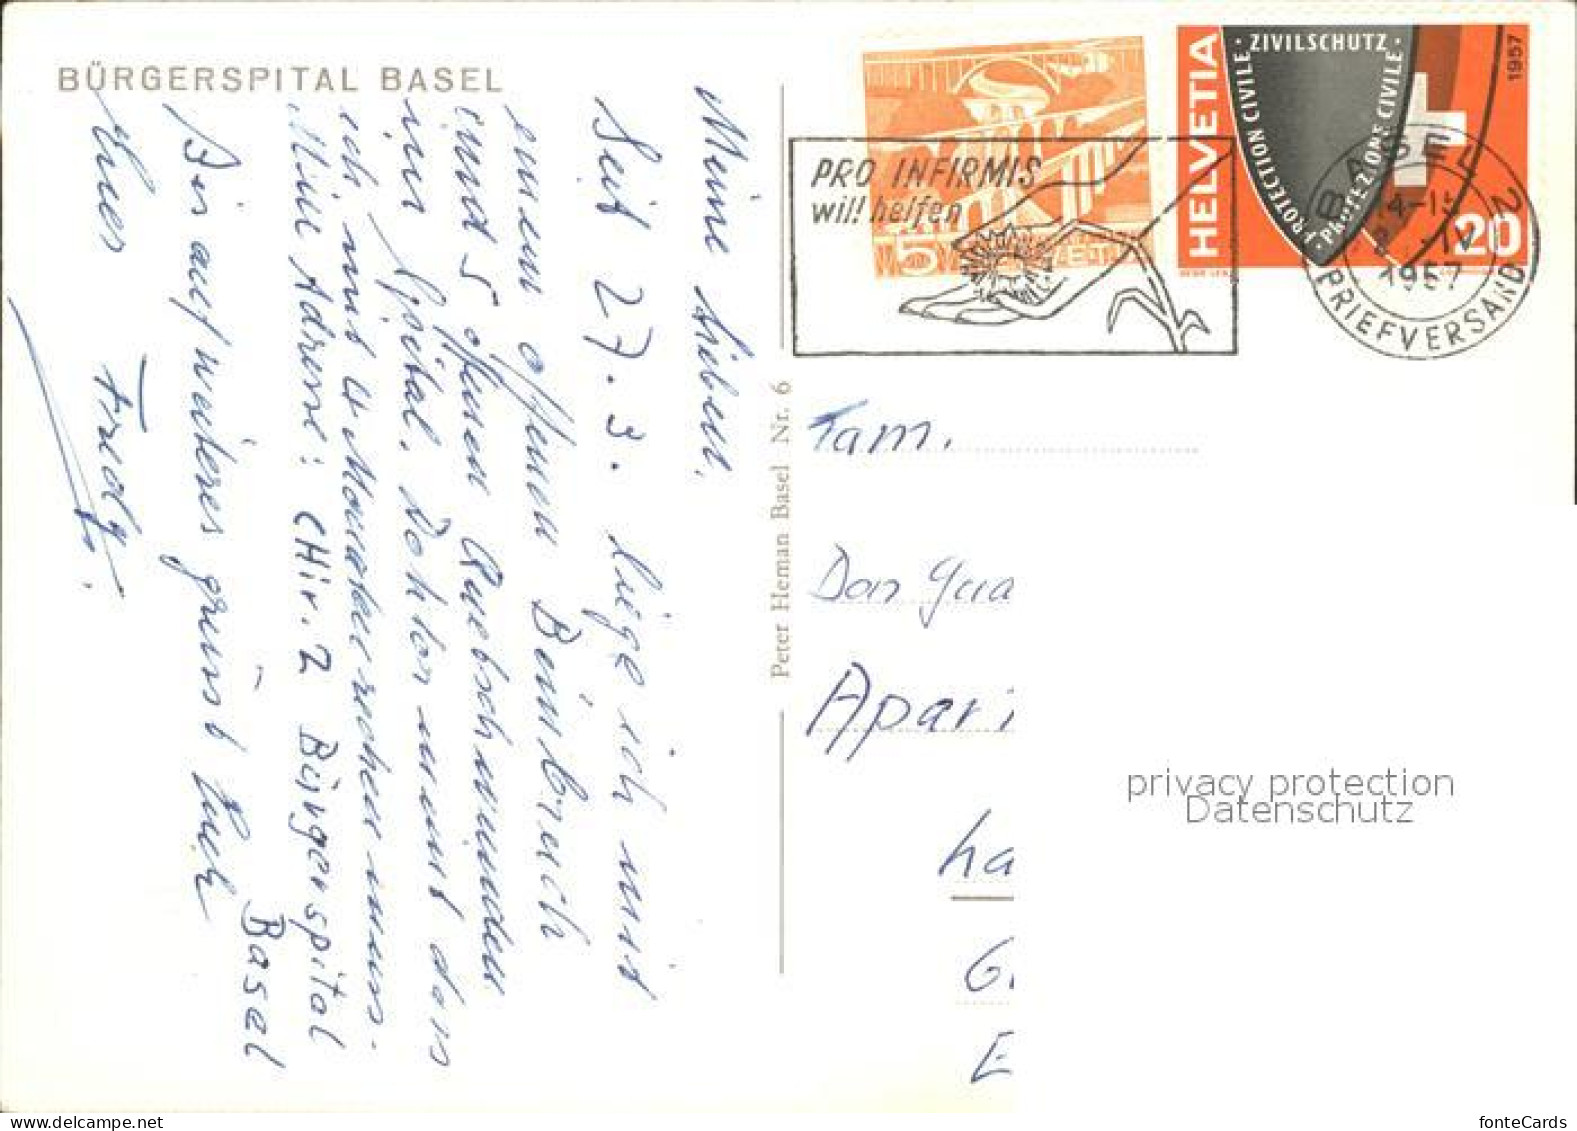 BÜRGERSPITAL BASEL
Meine Lieben.
Seit 27.3. liege ich mit
einem offenen Beinbruch
und 5 offenen Quetschwunden
im Spital. Doktor meint dass
ich mit 4 Monaten rechen muss.
Mein Adresse: CHir. 2 Bürgerspital
Basel
Bis auf weiteres grüsst Euch
Euer Fredy.
Peter Heman Basel Nr. 6
PRO INFIRMIS
will helfen
5
HELVETIA
· ZIVILSCHUTZ ·
PROTECTION CIVILE
PROTEZIONE CIVILE
1957
20
BASEL 2
14-15
IV
1957
BRIEFVERSAND
Fam.
Don Gua
Apari
ha
G
E
privacy protection
Datenschutz
fonteCards